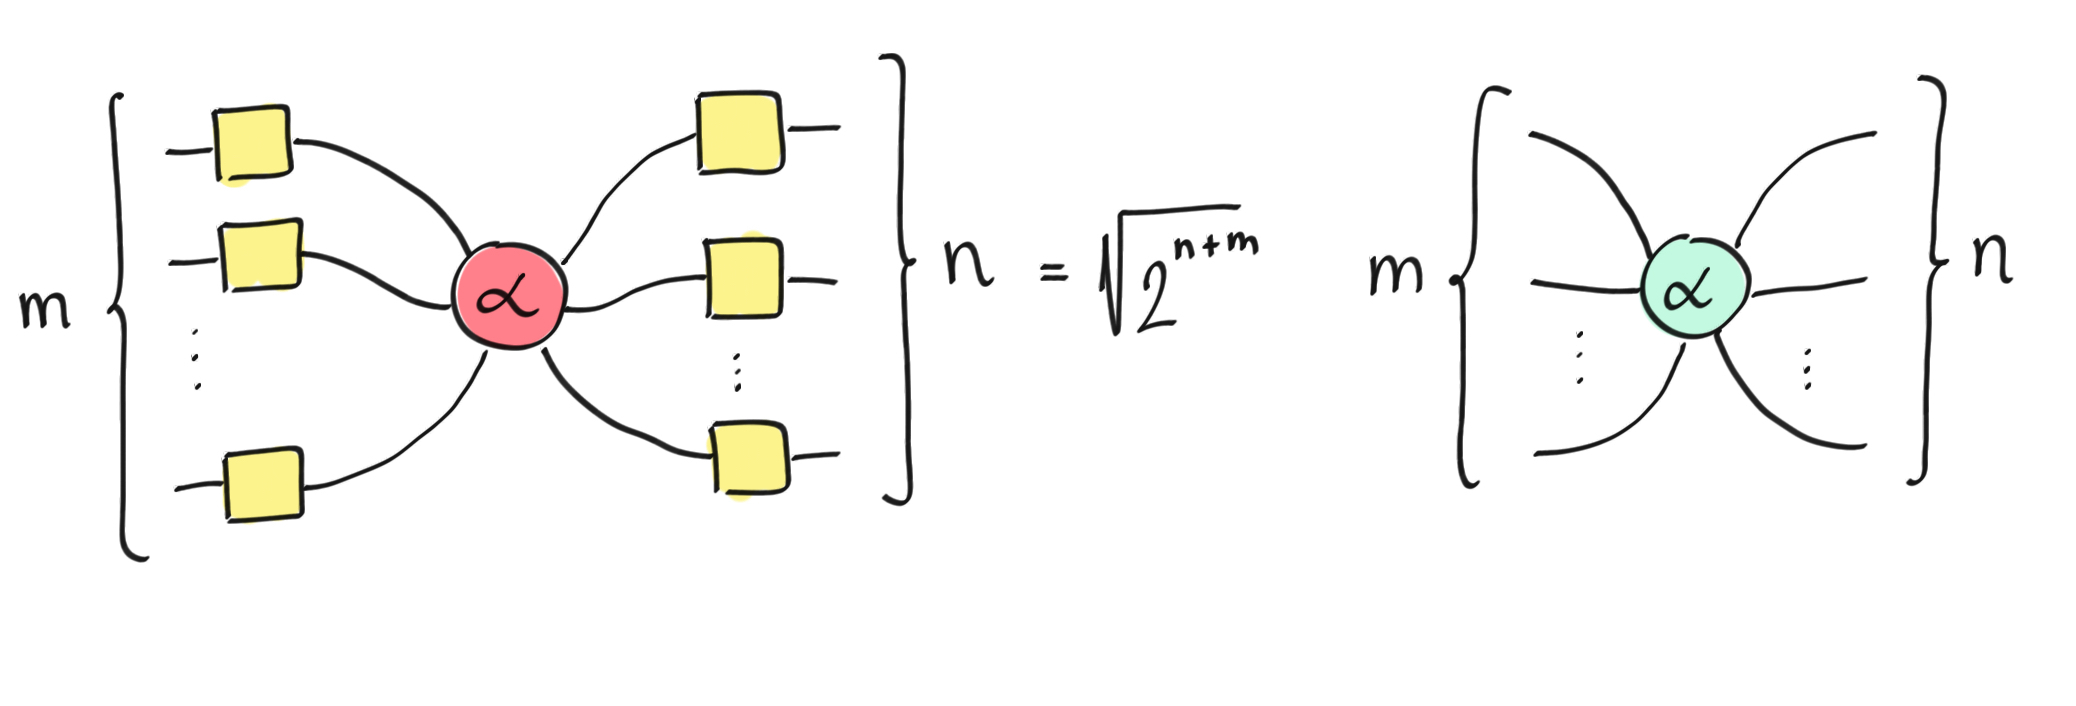 m { α } n = √2^{n+m} m { α } n